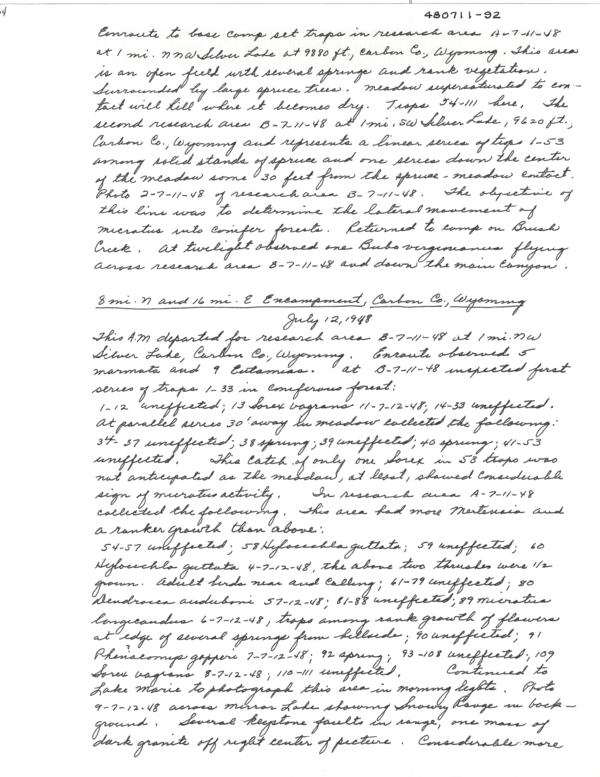 480711-92
Enroute to base camp set traps in research area A-7-11-48
at 1 mi. NNW Silver Lake at 9880 ft., Carbon Co., Wyoming. This area
is an open field with several springs and rank vegetation.
Surrounded by large spruce trees. Meadow supersaturated to con-
tact will hill where it becomes dry. Traps 54-111 here. The
second research area B-7-11-48 at 1 mi. SW Silver Lake, 9620 ft.,
Carbon Co., Wyoming and represents a linear series of traps 1-53
among solid stands of spruce and one series down the center
of the meadow some 30 feet from the spruce-meadow contact.
Photo 2-7-11-48 of research area B-7-11-48. The objective of
this line was to determine the lateral movement of
microtus into conifer forests. Returned to camp on Brush
Creek. At twilight observed one Bubo virginianus flying
across research area B-7-11-48 and down the main Canyon.
8 mi. N and 16 mi. E Encampment, Carbon Co., Wyoming
July 12, 1948
This A.M departed for research area B-7-11-48 at 1 mi. NW
Silver Lake, Carbon Co., Wyoming. Enroute observed 5
marmota and 9 Eutamias. At B-7-11-48 inspected first
series of traps 1-33 in coniferous forest:
1-12 uneffected; 13 Sorex vagrans 11-7-12-48; 14-33 uneffected.
At parallel series 30' away in meadow collected the following:
34-37 uneffected; 38 sprung; 39 uneffected; 40 sprung; 41-53
uneffected. This catch of only one Sorex in 53 traps was
not anticipated as the meadow, at least, showed considerable
sign of microtus activity. In research area A-7-11-48
collected the following. This area had more Mertensia and
a ranker growth than above:
54-57 uneffected; 58 Hylocichla guttata; 59 uneffected; 60
Hylocichla guttata 4-7-12-48, the above two thrushes were 1/2
grown. Adult birds near and calling; 61-79 uneffected; 80
Dendroica auduboni 5 7-12-48; 81-88 uneffected; 89 microtus
longicaudus 6-7-12-48, traps among rank growth of flowers
at edge of several springs from hillside; 90 uneffected; 91
Phenacomys gapperi 7-7-12-48; 92 sprung; 93-108 uneffected; 109
Sorex vagrans 8-7-12-48; 110-111 uneffected. Continued to
Lake Marie to photograph this area in morning lights. Photo
9-7-12-48 across mirror Lake showing Snowy Range in back-
ground. Several keystone faults in range, one mass of
dark granite off right center of picture. Considerable more